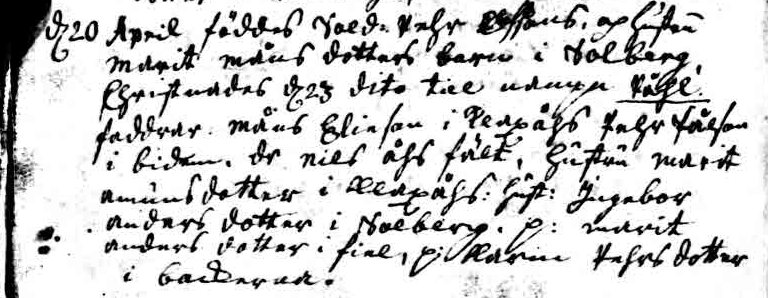 d 20 April föddes Sold: Pehr Olssons, og hustru
Marit Måns dotters barn i Solberg,
Christnades d 23 dito till namn Påhl.
faddrar. Måns Elieson i Klxåhs Pehr Pålson
i biden. dr Nils åhs fält, hustru Marit
amunsdotter i Klxåhs: hust: Ingebor
anders dotter i Solberg. p: marit
anders dotter i fiel, p: Karin Pehrs dotter
i backerna.